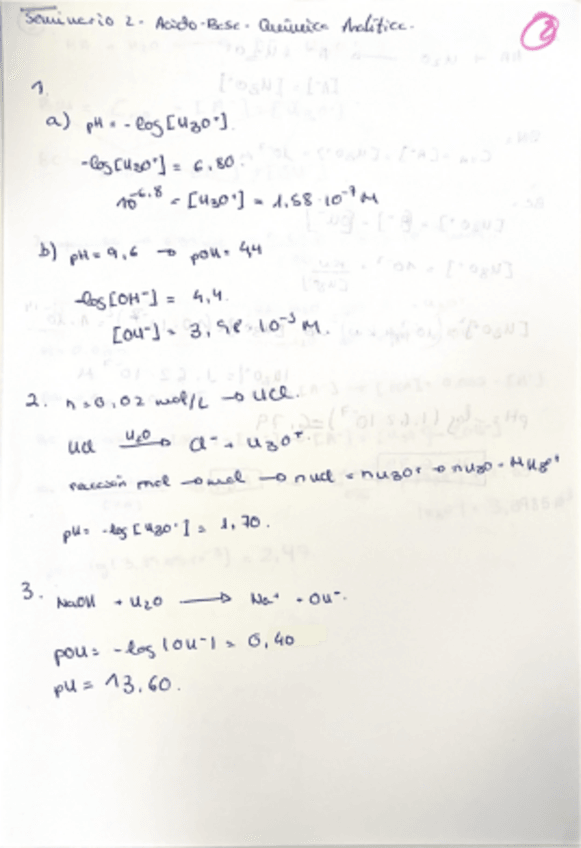 Seminario 2. Acido-Base. Química Analítica.
2
1.
a) pH = -log[H3O+].
-log[H3O+] = 6,80.
10^-6,8 = [H3O+] = 1,58·10^-7 M
b) pH = 9,6 → pOH = 4,4
-log[OH-] = 4,4.
[OH-] = 3,98·10^-5 M.
2. n = 0,02 mol/L → HCl.
HCl H2O→ Cl- + H3O+.
mol → mol → n HCl = n H3O+ →
pH = -log[H3O+] = 1,70.
3. NaOH + H2O → Na+ + OH-.
pOH = -log[OH-] = 0,40
pH = 13,60.